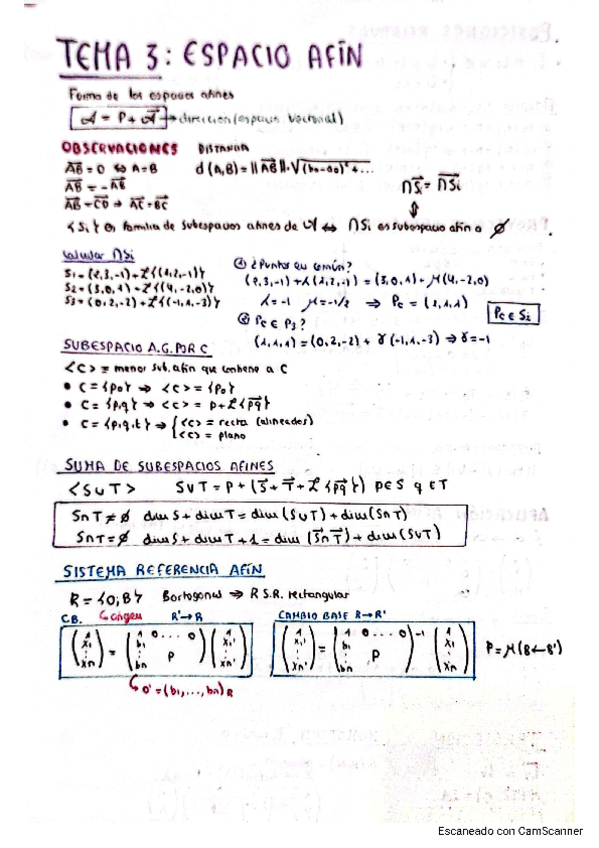 TEMA 3: ESPACIO AFÍN
Forma de los espacios afines
A = P + A⃗ → dirección (espacio vectorial)
OBSERVACIONES DISTANCIA
AB⃗ = 0 ⇔ A=B d(A,B) = ||AB⃗|| = √(b₀-a₀)²+...
AB⃗ = -AB⃗
AB⃗ = CD⃗ ⇒ AC⃗ = BC⃗
∩Si⃗ = ∩Si⃗
⇕
{Si} es familia de subespacios afines de A ⇔ ∩Si es subespacio afín a ∅
Calcular ∩Si
S1 = (2,3,-1) + L{(1,2,-1)}
S2 = (3,0,1) + L{(4,-2,0)}
S3 = (0,2,-2) + L{(-1,1,-3)}
① ¿Puntos en común?
(2,3,-1) + λ(1,2,-1) = (3,0,1) + μ(4,-2,0)
λ=-1 μ=-1/2 ⇒ Pc = (1,1,1)
Pc ∈ Si
② Pc ∈ P3?
(1,1,1) = (0,2,-2) + γ(-1,1,-3) ⇒ γ=-1
SUBESPACIO A.G. POR C
<C> = menor sub. afín que contiene a C
• C = {p₀} ⇒ <C> = {p₀}
• C = {p,q} ⇒ <C> = p + L{pq⃗}
• C = {p,q,t} ⇒ { <C> = recta (alineados)
<C> = plano
SUMA DE SUBESPACIOS AFINES
<S∪T> S∨T = P + (S⃗ + T⃗ + L{pq⃗}) p∈S q∈T
S∩T ≠ ∅ dim S + dim T = dim(S∨T) + dim(S∩T)
S∩T = ∅ dim S + dim T + 1 = dim(S⃗∩T⃗) + dim(S∨T)
SISTEMA REFERENCIA AFÍN
R = {O;B} B ortogonal ⇒ R S.R. rectangular
↳ origen
C.B. R'→R
CAMBIO BASE R→R'
(1 x₁ ⋮ xn) = (1 0 ... 0 b₁ ⋮ bn P) (1 x₁' ⋮ xn')
(1 x₁' ⋮ xn') = (1 0 ... 0 b₁ ⋮ bn P)⁻¹ (1 x₁ ⋮ xn)
P = M(B←B')
↳ O' = (b₁,...,bn)R
Escaneado con CamScanner